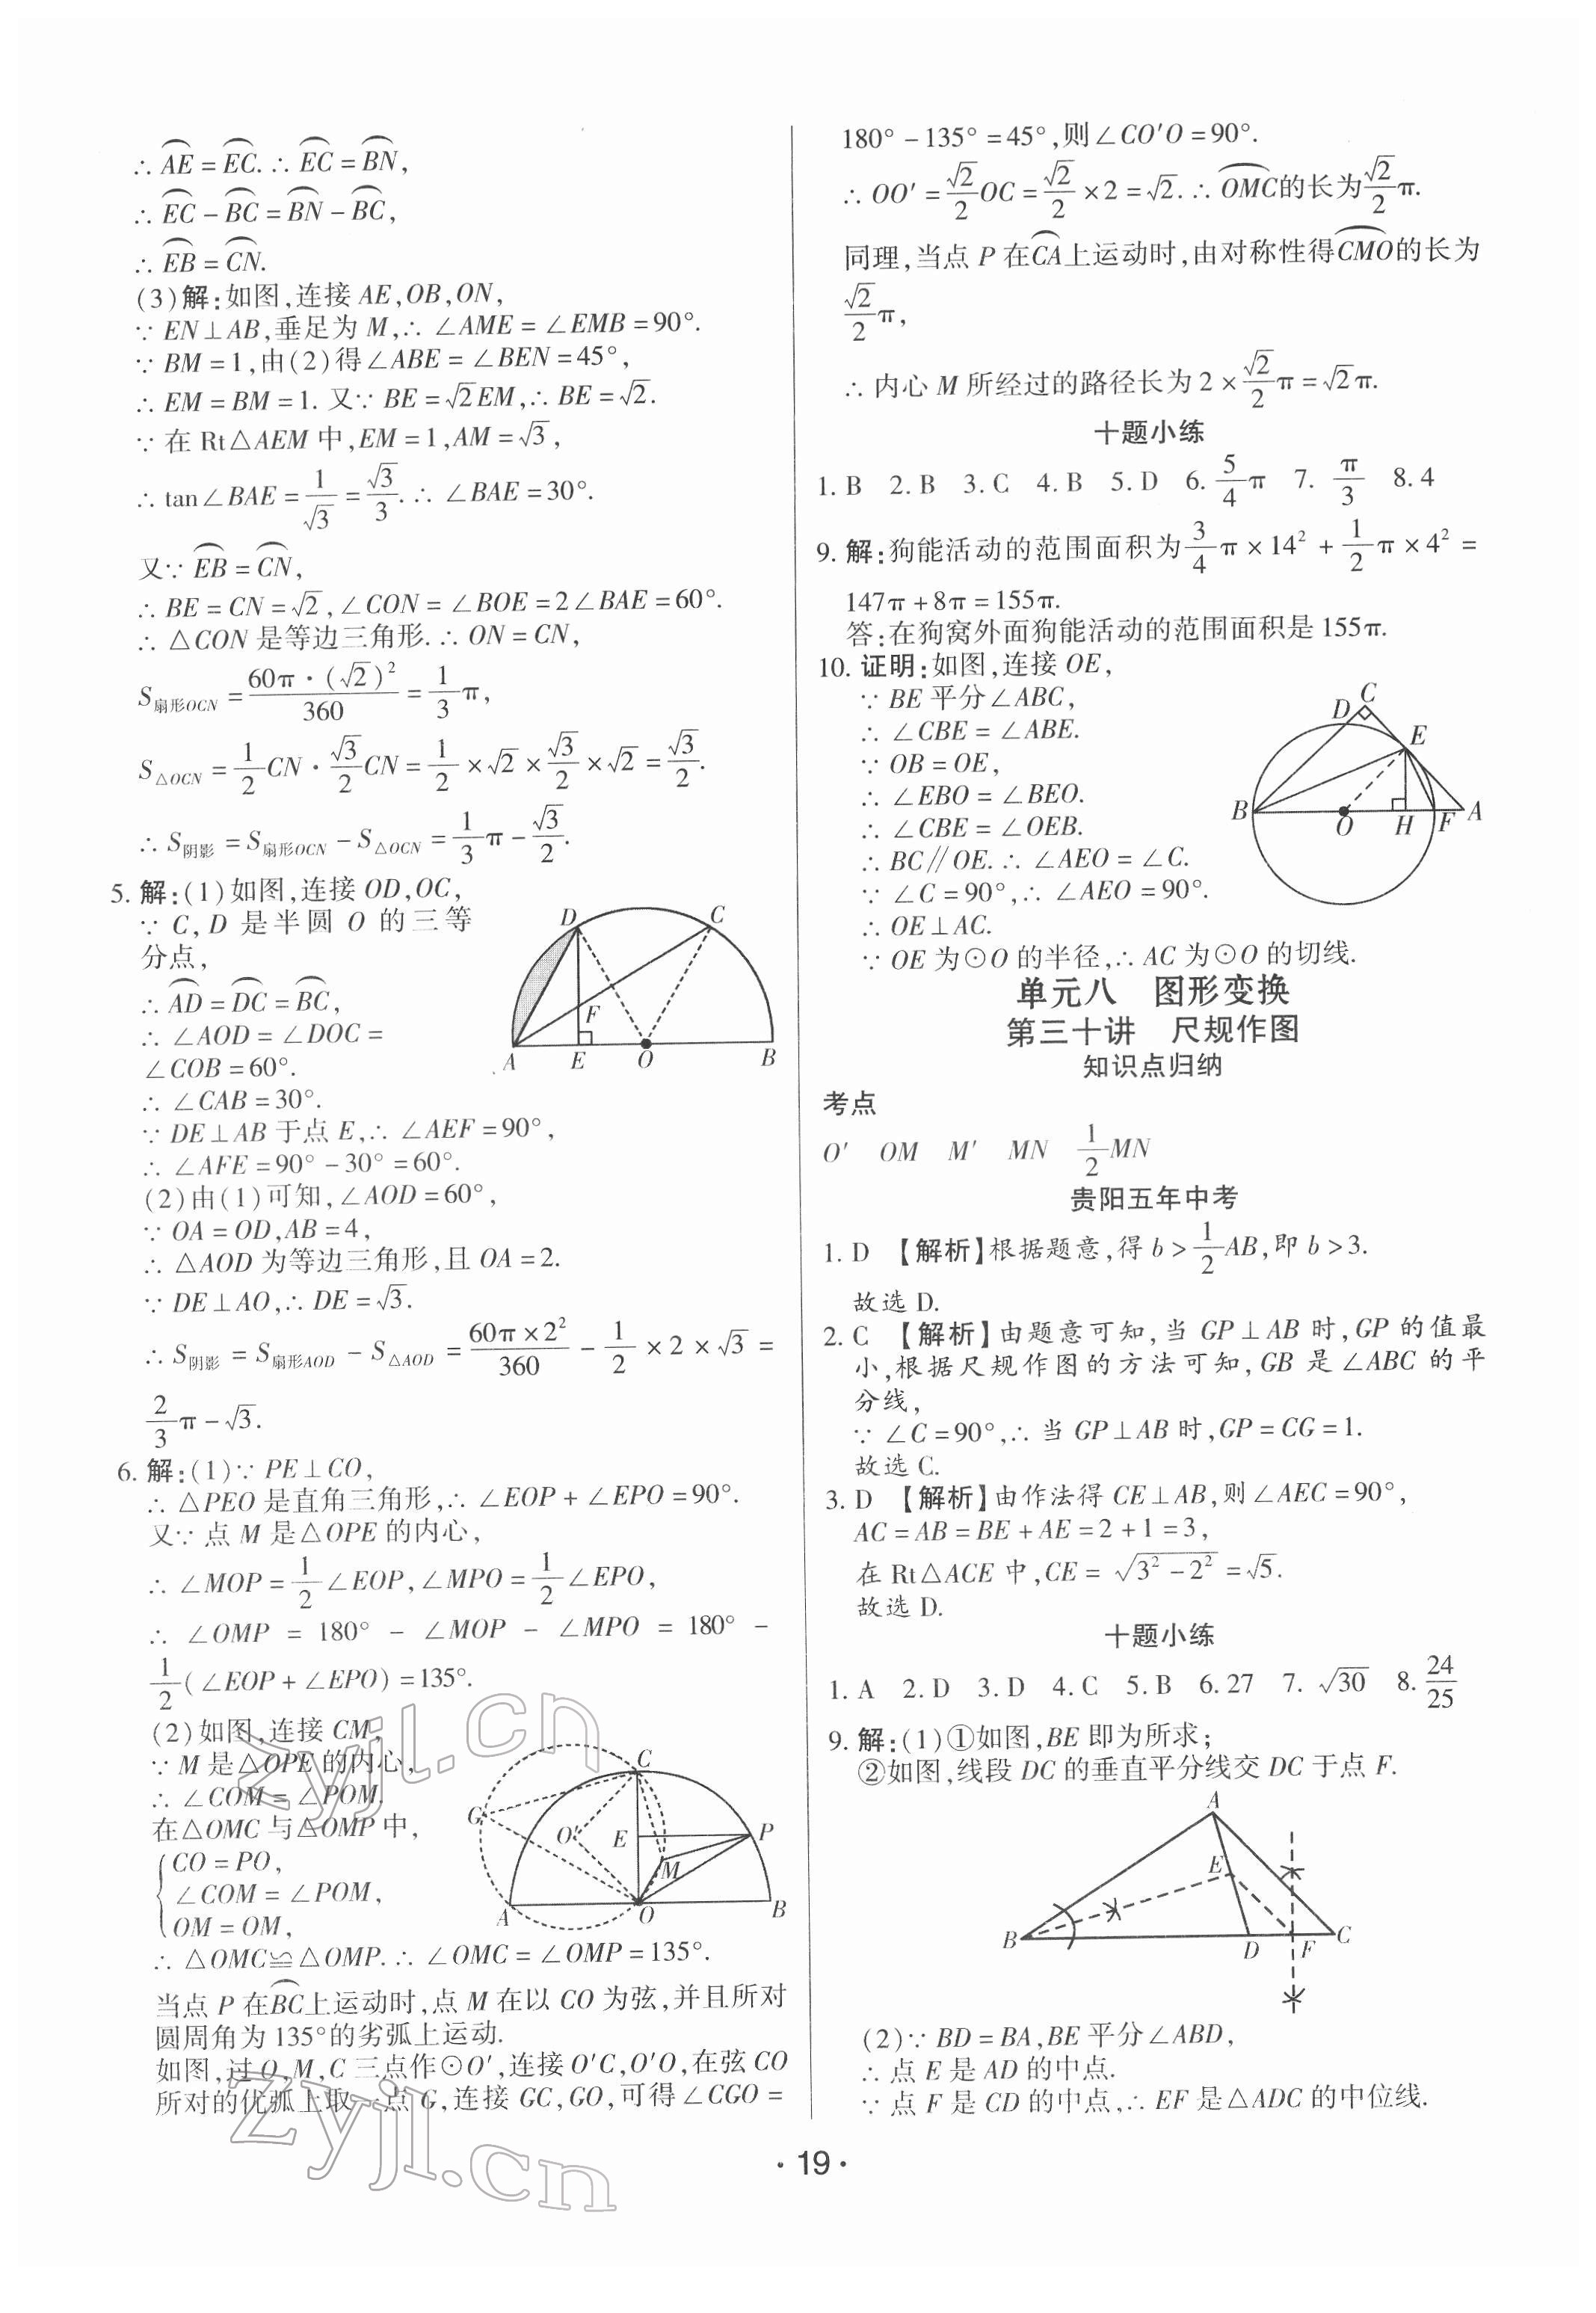 ∴ AE⌒ = EC⌒. ∴ EC⌒ = BN⌒,
∴ EC⌒ - BC⌒ = BN⌒ - BC⌒,
∴ EB⌒ = CN⌒.
(3)解:如图,连接 AE,OB,ON,
∵ EN⊥AB,垂足为 M,∴ ∠AME = ∠EMB = 90°.
∵ BM = 1,由(2)得∠ABE = ∠BEN = 45°,
∴ EM = BM = 1. 又∵ BE = √2EM,∴ BE = √2.
∵ 在 Rt△AEM 中,EM = 1,AM = √3,
∴ tan∠BAE = 1/√3 = √3/3. ∴ ∠BAE = 30°.
又∵ EB⌒ = CN⌒,
∴ BE = CN = √2,∠CON = ∠BOE = 2∠BAE = 60°.
∴ △CON 是等边三角形. ∴ ON = CN,
S扇形OCN = 60π·(√2)²/360 = 1/3π,
S△OCN = 1/2CN·√3/2CN = 1/2 × √2 × √3/2 × √2 = √3/2.
∴ S阴影 = S扇形OCN - S△OCN = 1/3π - √3/2.
5. 解:(1)如图,连接 OD,OC,
∵ C,D 是半圆 O 的三等
分点,
∴ AD⌒ = DC⌒ = BC⌒,
∴ ∠AOD = ∠DOC =
∠COB = 60°.
∴ ∠CAB = 30°.
∵ DE⊥AB 于点 E,∴ ∠AEF = 90°,
∴ ∠AFE = 90° - 30° = 60°.
D C F A E O B
(2)由(1)可知,∠AOD = 60°,
∵ OA = OD,AB = 4,
∴ △AOD 为等边三角形,且 OA = 2.
∵ DE⊥AO,∴ DE = √3.
∴ S阴影 = S扇形AOD - S△AOD = 60π × 2²/360 - 1/2 × 2 × √3 =
2/3π - √3.
6. 解:(1)∵ PE⊥CO,
∴ △PEO 是直角三角形,∴ ∠EOP + ∠EPO = 90°.
又∵ 点 M 是△OPE 的内心,
∴ ∠MOP = 1/2∠EOP,∠MPO = 1/2∠EPO,
∴ ∠OMP = 180° - ∠MOP - ∠MPO = 180° -
1/2(∠EOP + ∠EPO) = 135°.
(2)如图,连接 CM,
∵ M 是△OPE 的内心,
∴ ∠COM = ∠POM.
在△OMC 与△OMP 中,
{CO = PO,
∠COM = ∠POM,
OM = OM,
C G O′ E P M A O B
∴ △OMC≌△OMP. ∴ ∠OMC = ∠OMP = 135°.
当点 P 在BC⌒上运动时,点 M 在以 CO 为弦,并且所对
圆周角为 135°的劣弧上运动.
如图,过 O,M,C 三点作⊙O′,连接 O′C,O′O,在弦 CO
所对的优弧上取一点 G,连接 GC,GO,可得∠CGO =
180° - 135° = 45°,则∠CO′O = 90°.
∴ OO′ = √2/2OC = √2/2 × 2 = √2. ∴ OMC⌒的长为√2/2π.
同理,当点 P 在CA⌒上运动时,由对称性得CMO⌒的长为
√2/2π,
∴ 内心 M 所经过的路径长为 2 × √2/2π = √2π.
十题小练
1. B 2. B 3. C 4. B 5. D 6. 5/4π 7. π/3 8. 4
9. 解:狗能活动的范围面积为3/4π × 14² + 1/2π × 4² =
147π + 8π = 155π.
答:在狗窝外面狗能活动的范围面积是 155π.
10. 证明:如图,连接 OE,
∵ BE 平分∠ABC,
∴ ∠CBE = ∠ABE.
∵ OB = OE,
∴ ∠EBO = ∠BEO.
∴ ∠CBE = ∠OEB.
∴ BC∥OE. ∴ ∠AEO = ∠C.
∵ ∠C = 90°,∴ ∠AEO = 90°.
∴ OE⊥AC.
∵ OE 为⊙O 的半径,∴ AC 为⊙O 的切线.
C D E B O H F A
单元八 图形变换
第三十讲 尺规作图
知识点归纳
考点
O′ OM M′ MN 1/2MN
贵阳五年中考
1. D 【解析】根据题意,得 b > 1/2AB,即 b > 3.
故选 D.
2. C 【解析】由题意可知,当 GP⊥AB 时,GP 的值最
小,根据尺规作图的方法可知,GB 是∠ABC 的平
分线,
∵ ∠C = 90°,∴ 当 GP⊥AB 时,GP = CG = 1.
故选 C.
3. D 【解析】由作法得 CE⊥AB,则∠AEC = 90°,
AC = AB = BE + AE = 2 + 1 = 3,
在 Rt△ACE 中,CE = √(3² - 2²) = √5.
故选 D.
十题小练
1. A 2. D 3. D 4. C 5. B 6. 27 7. √30 8. 24/25
9. 解:(1)①如图,BE 即为所求;
②如图,线段 DC 的垂直平分线交 DC 于点 F.
A E B D F C
(2)∵ BD = BA,BE 平分∠ABD,
∴ 点 E 是 AD 的中点.
∵ 点 F 是 CD 的中点,∴ EF 是△ADC 的中位线.
· 19 ·
zyjl.cn
zyjl.cn